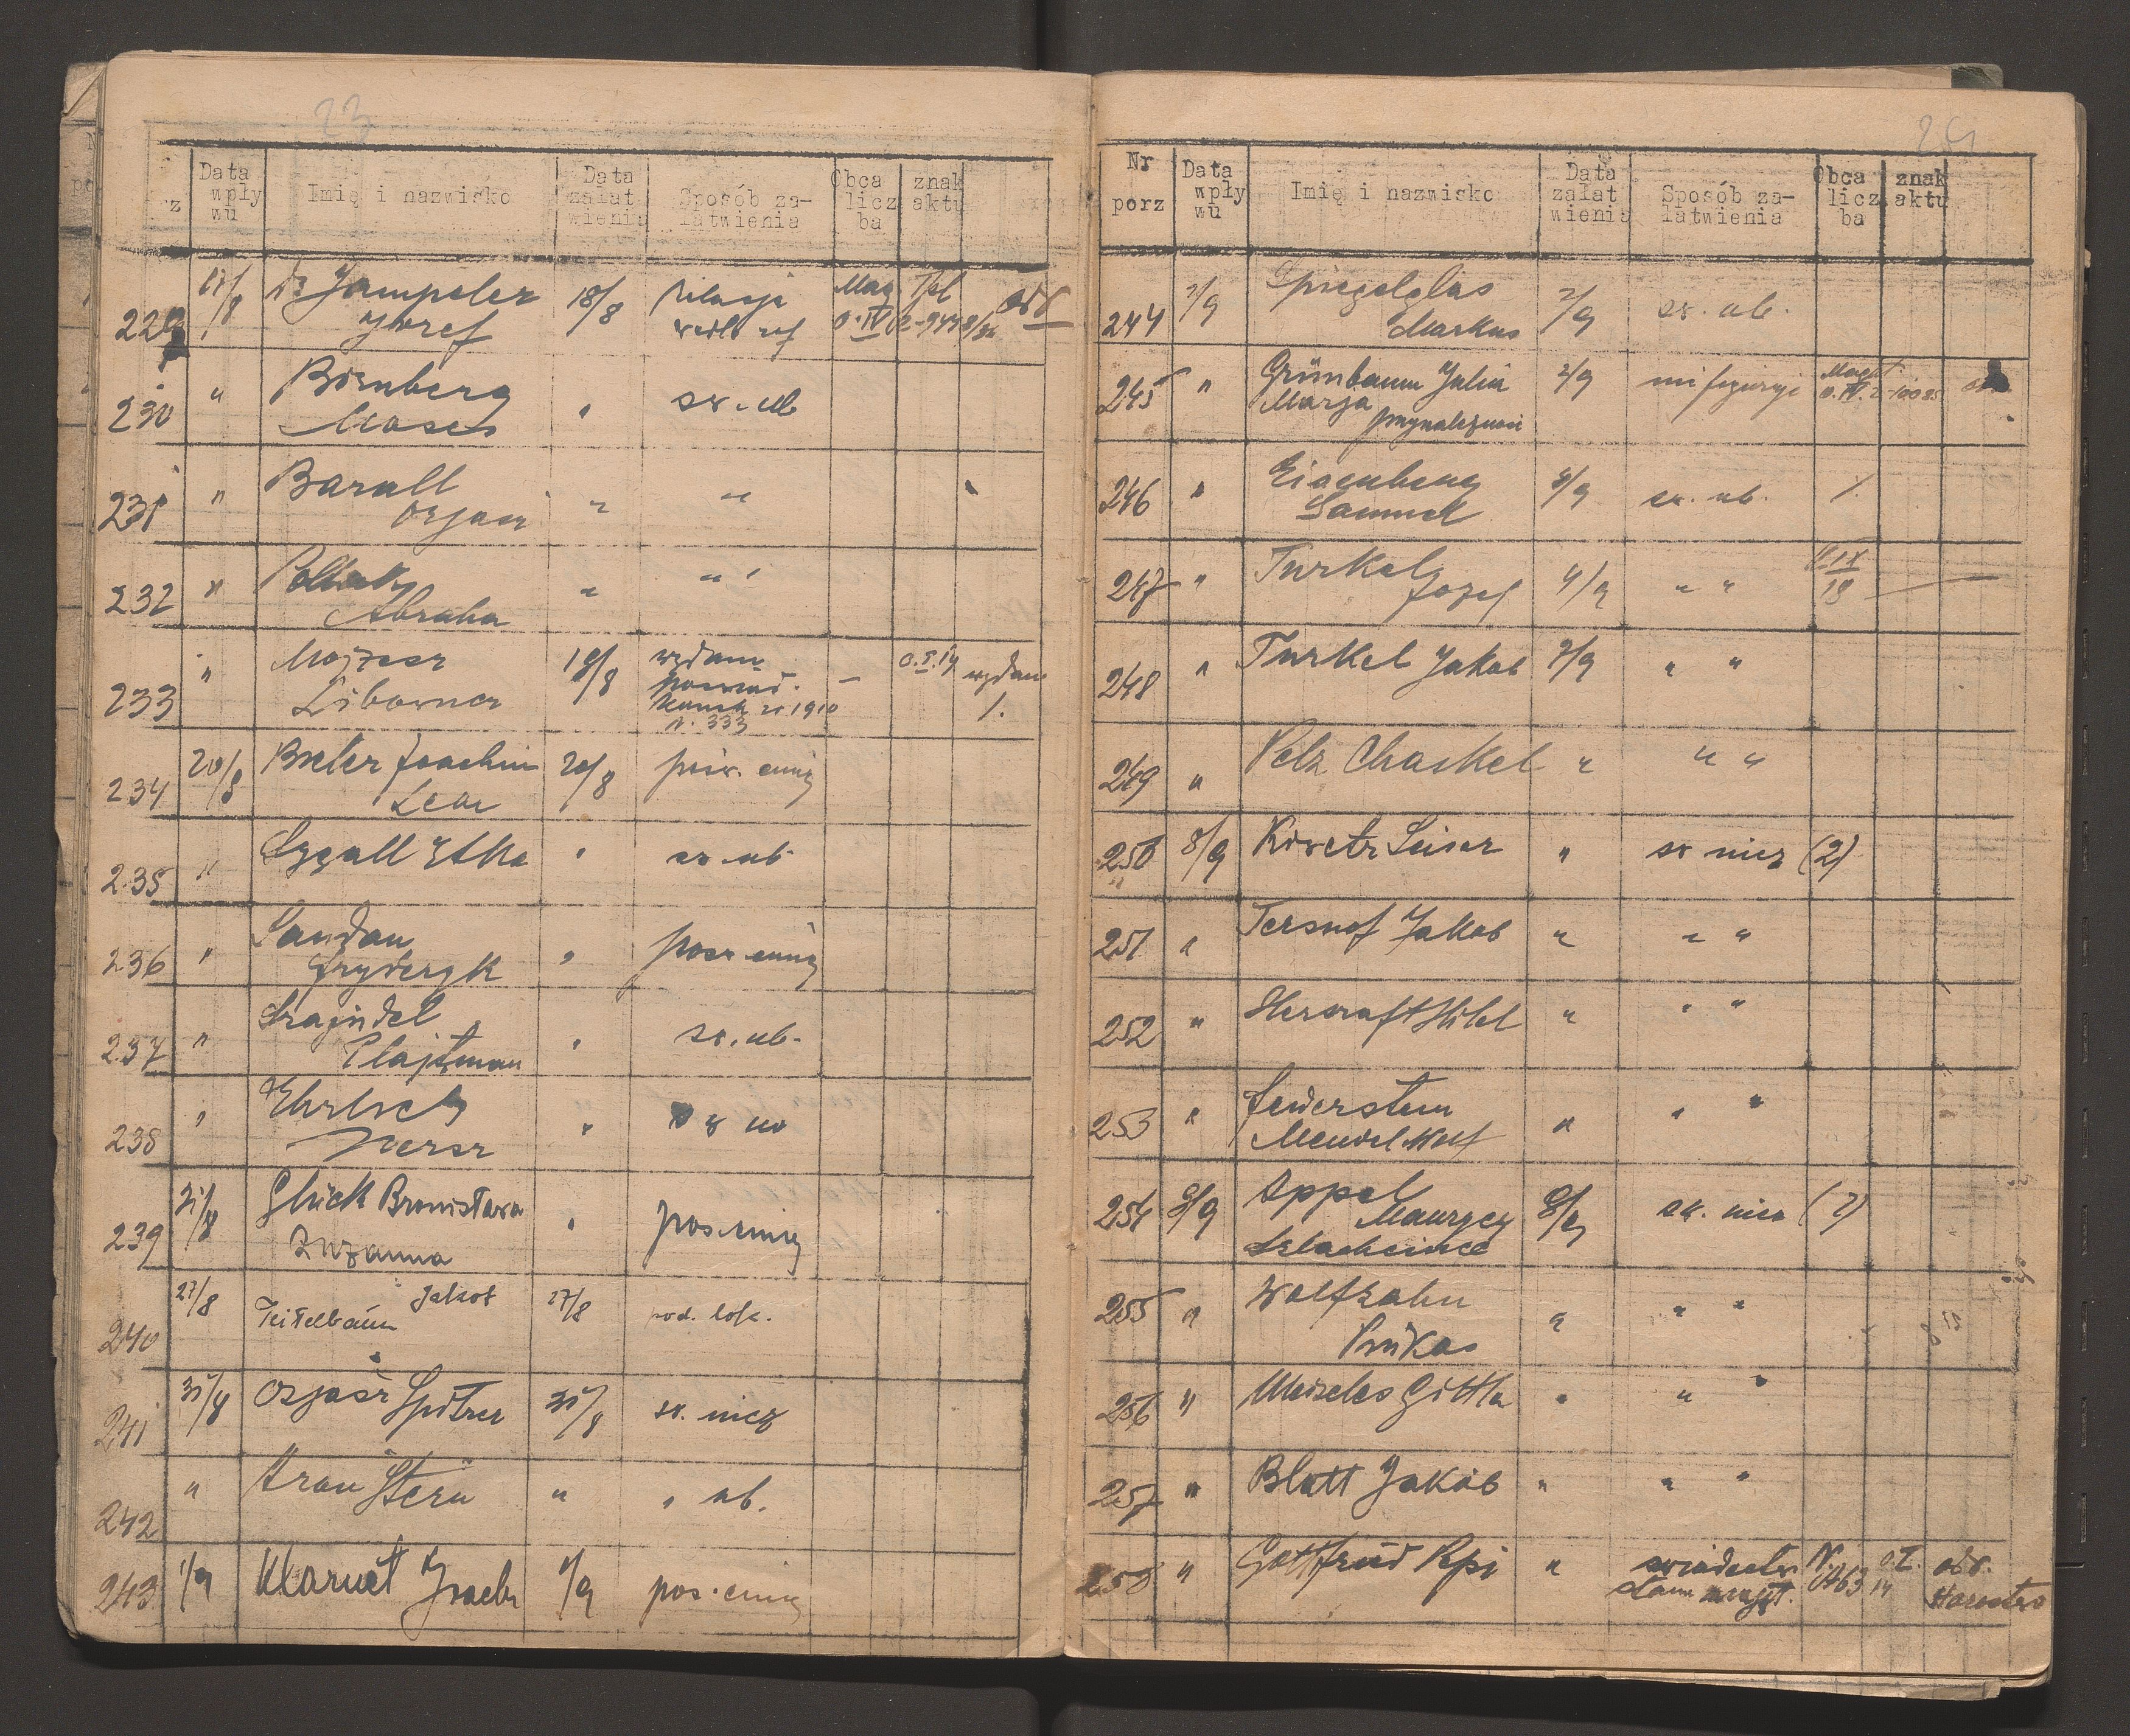 23
z
Data wpły wu
Imię i nazwisko
Data załat wienia
Sposób załatwienia
Obca licz ba
znak aktu
229 17/8 Dr Jampeler Józef 18/8 relacja Mag
230 " Birnberg Moses " św. ub
231 " Barall Ozjasz " "
232 " Pollak Abraha " "
233 " Mojżesz Liborner 19/8 wydano 1910 N. 333 — O.I.14 wydano
234 20/8 Bieler Joachim Leon 20/8 pośw. emig
235 " Sygall Etka " św. ub
236 " Landau Fryderyk " pośw. emig
237 " Frajndel Plajtman " św. ub.
238 " Ehrlich Hersz "
239 21/8 Glück Bronisława Zuzanna " poś. emig
240 27/8 Teitelbaum Jakob 27/8 pod. lok.
241 31/8 Ozjasz Spitzer 31/8 św. niez
242 " Aron Stern " " ub.
243 1/9 Klarnet Izrael 1/9 poś. emig
24
Nr porz
Data wpły wu
Imię i nazwisko
Data załat wienia
Sposób załatwienia
Obca licz ba
znak aktu
244 2/9 Spiegelglas Markus 2/9 św. ub.
245 " Grünbaum Julia Marja przynależność 2/9 nie figuruje Magt.
246 " Eisenberg Samuel 4/9 św. ub. /.
247 " Turkel Józef 4/9 " "
248 " Turkel Jakob 7/9 " "
249 " Pelz Chaskel " " "
250 8/9 Leiser " św niez (2)
251 " Tersnof Jakob " " "
252 " " " "
253 " Feuerstein Mendel Wolf " " "
254 9/9 Appel Maurycy 9/9 św. niez (2)
255 " Wolfzahn Pinkas " " "
256 " Meiseles Gittla " " "
257 " Blatt Jakób " " "
258 " Gottfried " świadectw. O.I. 14 odb. Starostwo